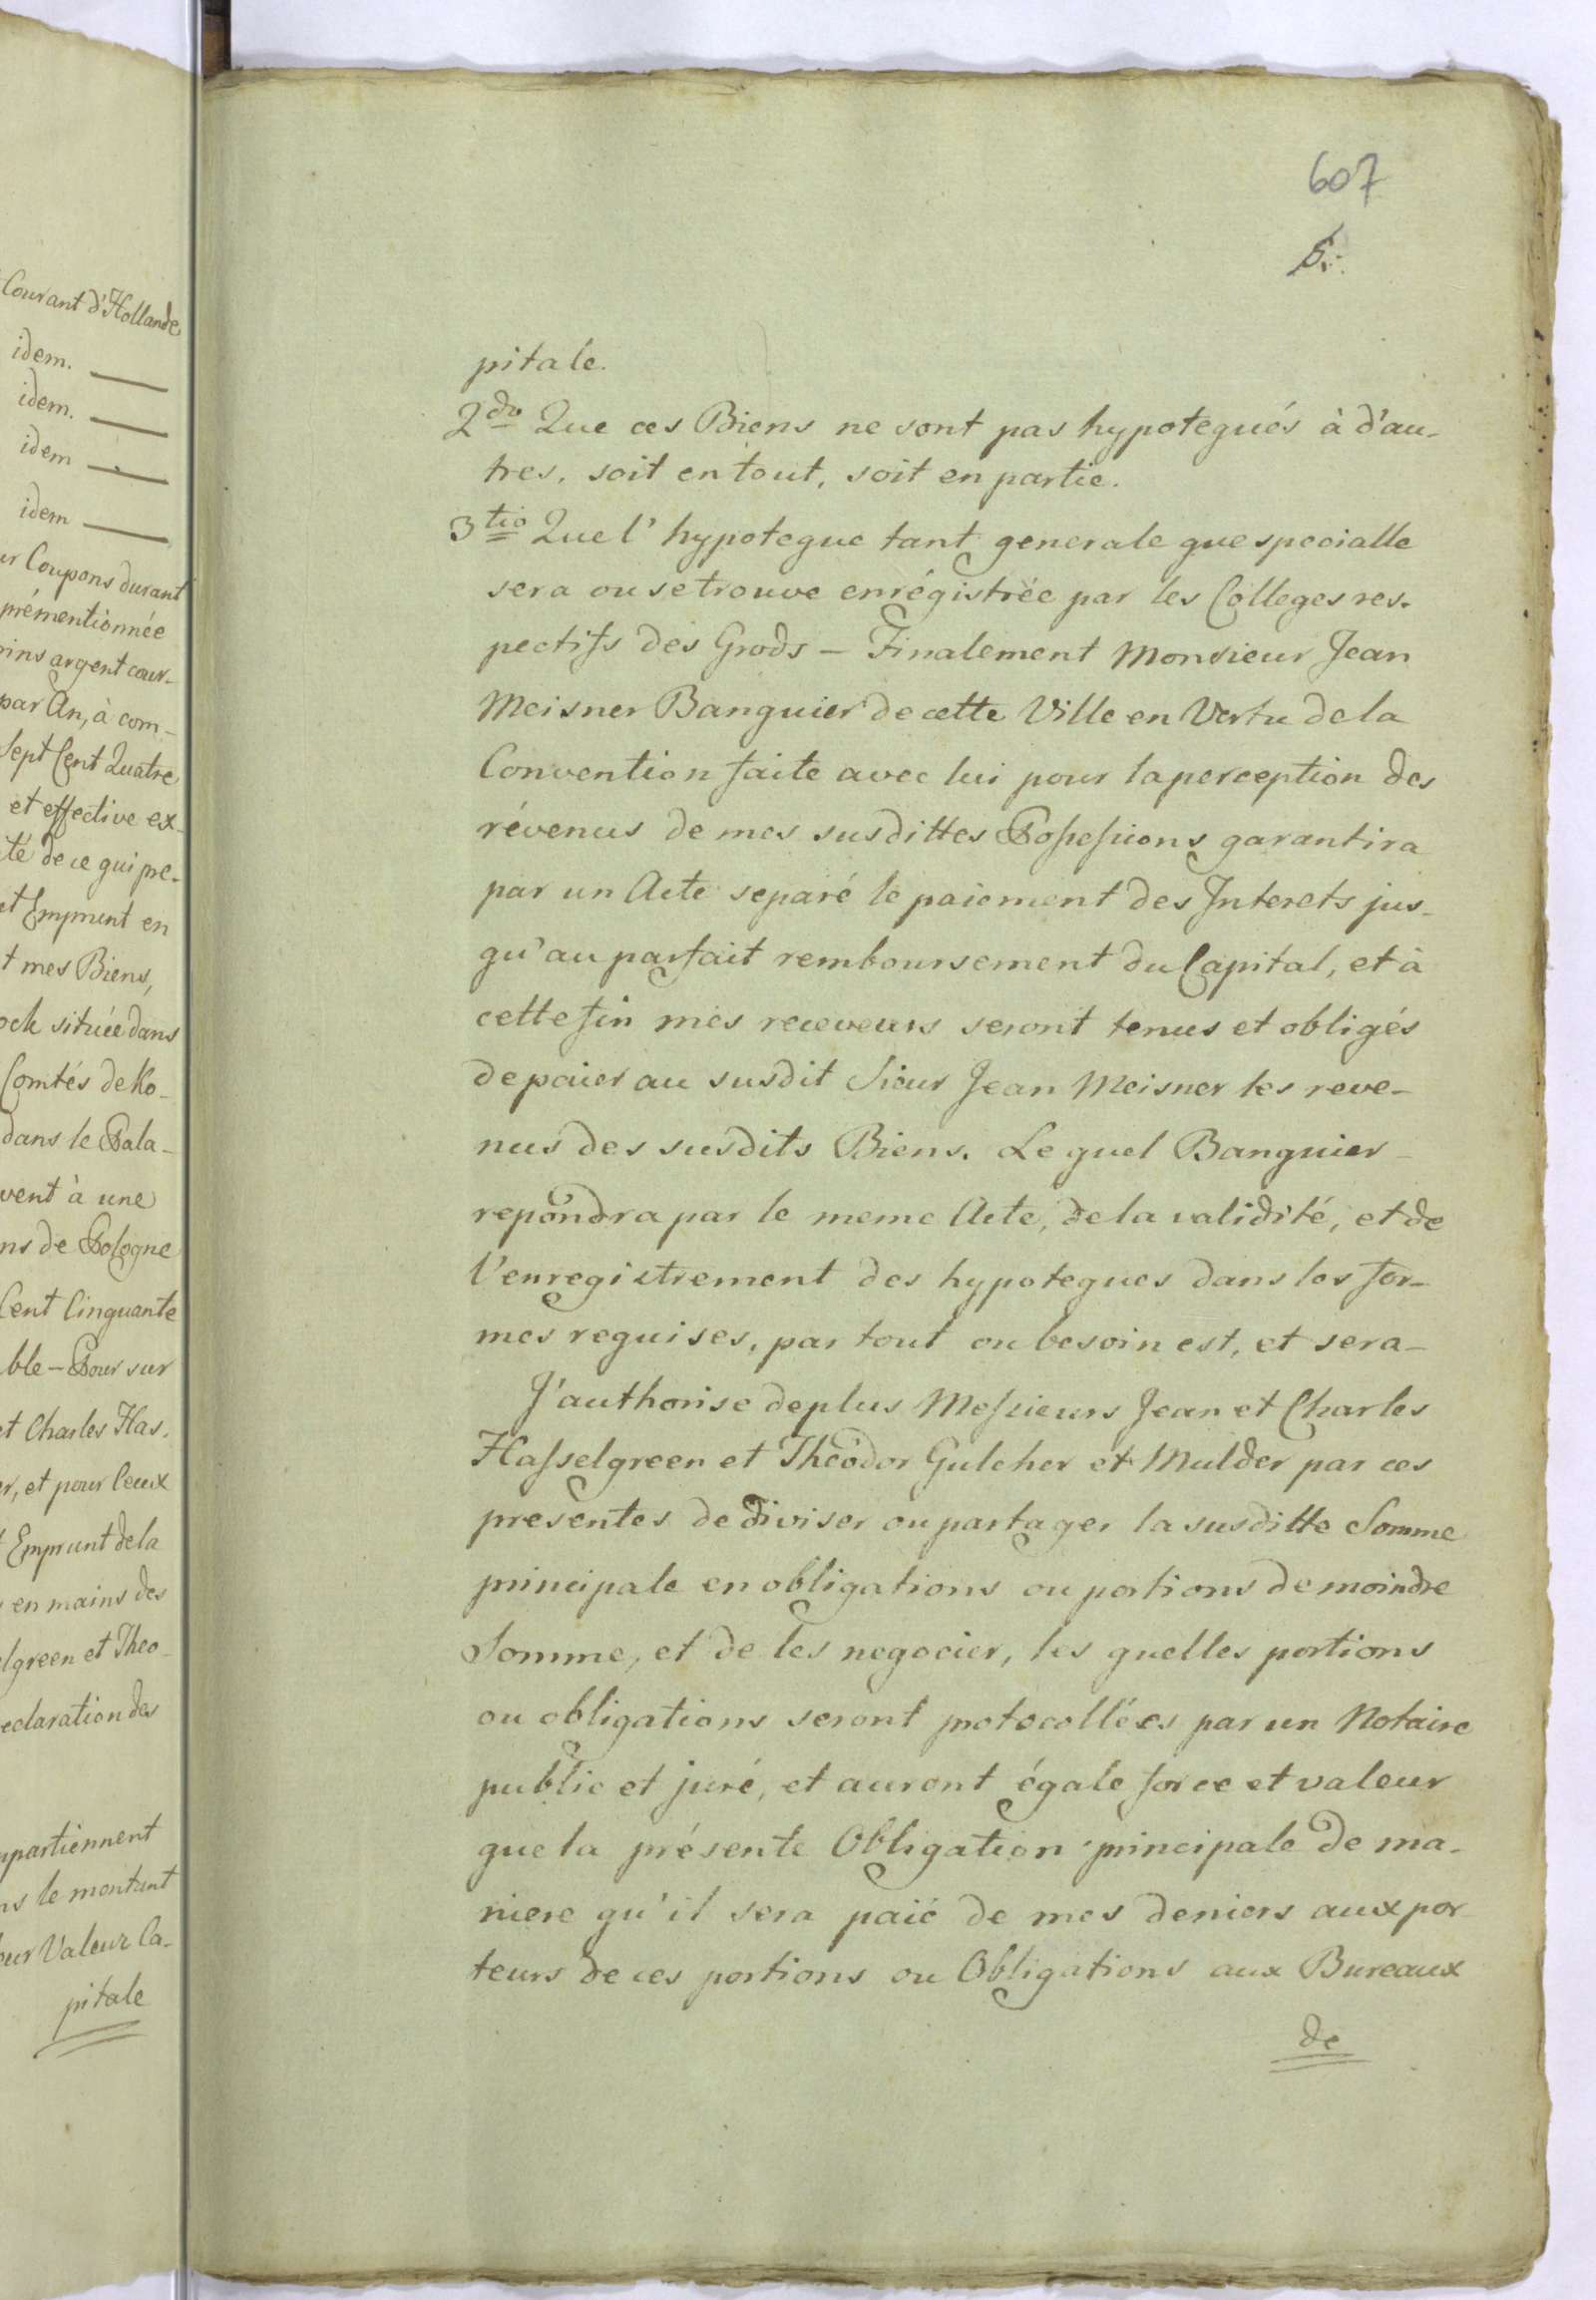 Courant d'Hollande
idem.
idem.
idem
idem
Coupons durant
prémentionnée
argent cour-
par An, à com-
Sept Cent Quatre
et effective ex-
té de ce qui pre-
Emprunt en
mes Biens,
située dans
Comtés de Ko-
dans le Pala-
vent à une
ns de Pologne
Cent Cinquante
ble - Pour sur
et Charles Has.
er, et pour Ceux
Emprunt de la
en mains des
lgreen et Theo-
eclaration des
ppartiennent
ns le montant
eur Valeur Ca-
pitale
607
5.
pitale.
2do Que ces Biens ne sont pas hypotequés à d'au-
tres, soit en tout, soit en partie.
3tio Que l'hypoteque tant generale que specialle
sera ou se trouve enrégistrée par les Colleges res-
pectifs des Grods - Finalement Monsieur Jean
Meisner Banquier de cette Ville en Vertu de la
Convention faite avec lui pour la perception des
révenus de mes susdittes Possessions garantira
par un Acte separé le paiement des Interets jus-
qu'au parfait remboursement du Capital, et à
cette fin mes receveurs seront tenus et obligés
de paier au susdit Sieur Jean Meisner les reve-
nus des susdits Biens. Le quel Banquier
repondra par le meme Acte, de la validité, et de
l'enregistrement des hypoteques dans les for-
mes requises, par tout ou besoin est, et sera-
J'authorise de plus Messieurs Jean et Charles
Hasselgreen et Théodor Gulcher et Mulder par ces
presentes de diviser ou partager la susditte Somme
principale en obligations ou portions de moindre
Somme, et de les negocier, les quelles portions
ou obligations seront protocollées par un Notaire
public et juré, et auront égale force et valeur
que la présente Obligation principale de ma-
niere qu'il sera paié de mes deniers aux por-
teurs de ces portions ou Obligations aux Bureaux
de